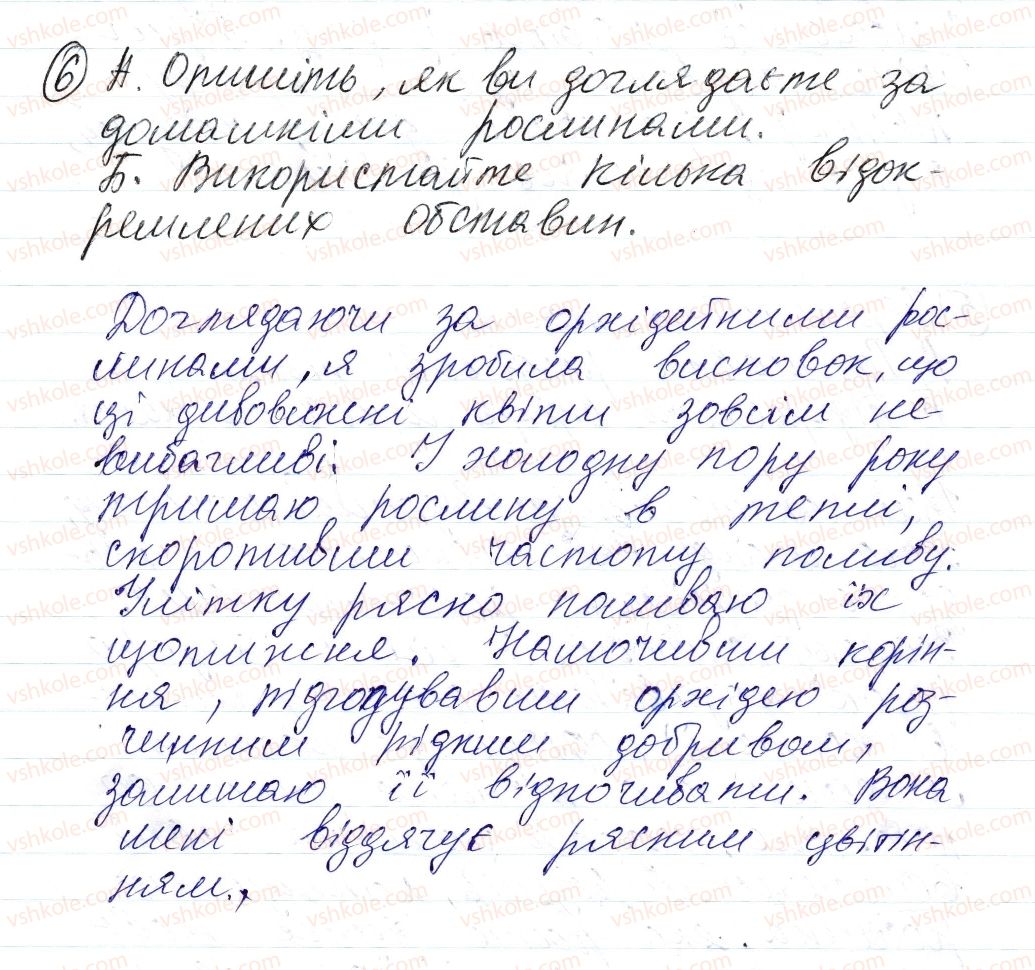 6 А. Опишіть, як ви доглядаєте за
домашніми рослинами.
Б. Використайте кілька відок-
ремлених обставин.
Доглядаючи за орхідейними рос-
линами, я зробила висновок, що
ці дивовижні квіти зовсім не-
вибагливі. У холодну пору року
тримаю рослину в теплі,
скоротивши частоту поливу.
Улітку рясно поливаю їх
щотижня. Намочивши корін-
ня, підгодувавши орхідею роз-
чинним рідким добривом,
залишаю її відпочивати. Вона
мені віддячує рясним цвітін-
ням.